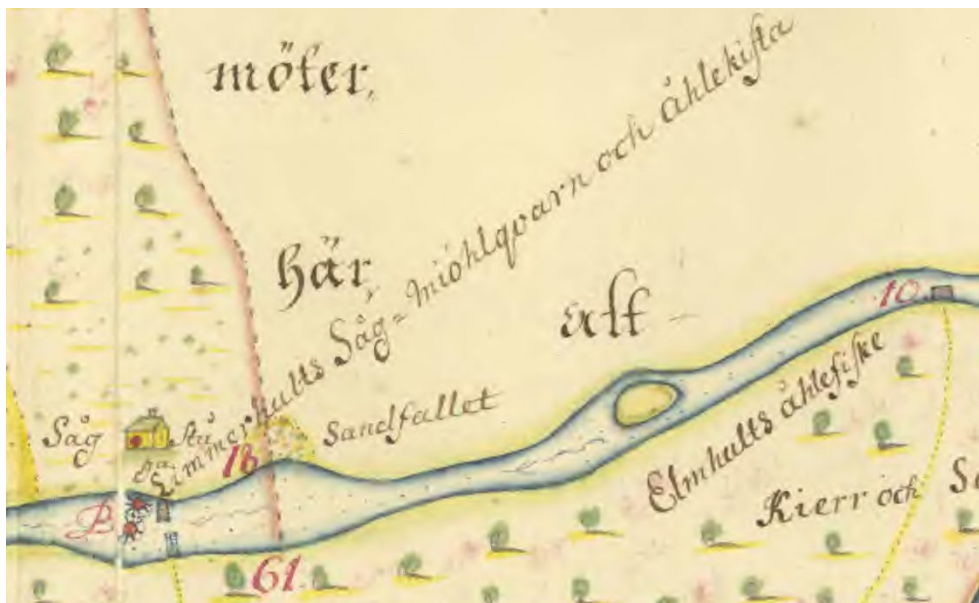 möter,
här,
alt
Limmerhults Såg= miöhlqvarn och åhlekista
10.
Sandfallet
Såg
Stu
ga
18
Elmhults åhlefiske
Kierr och
P
61.